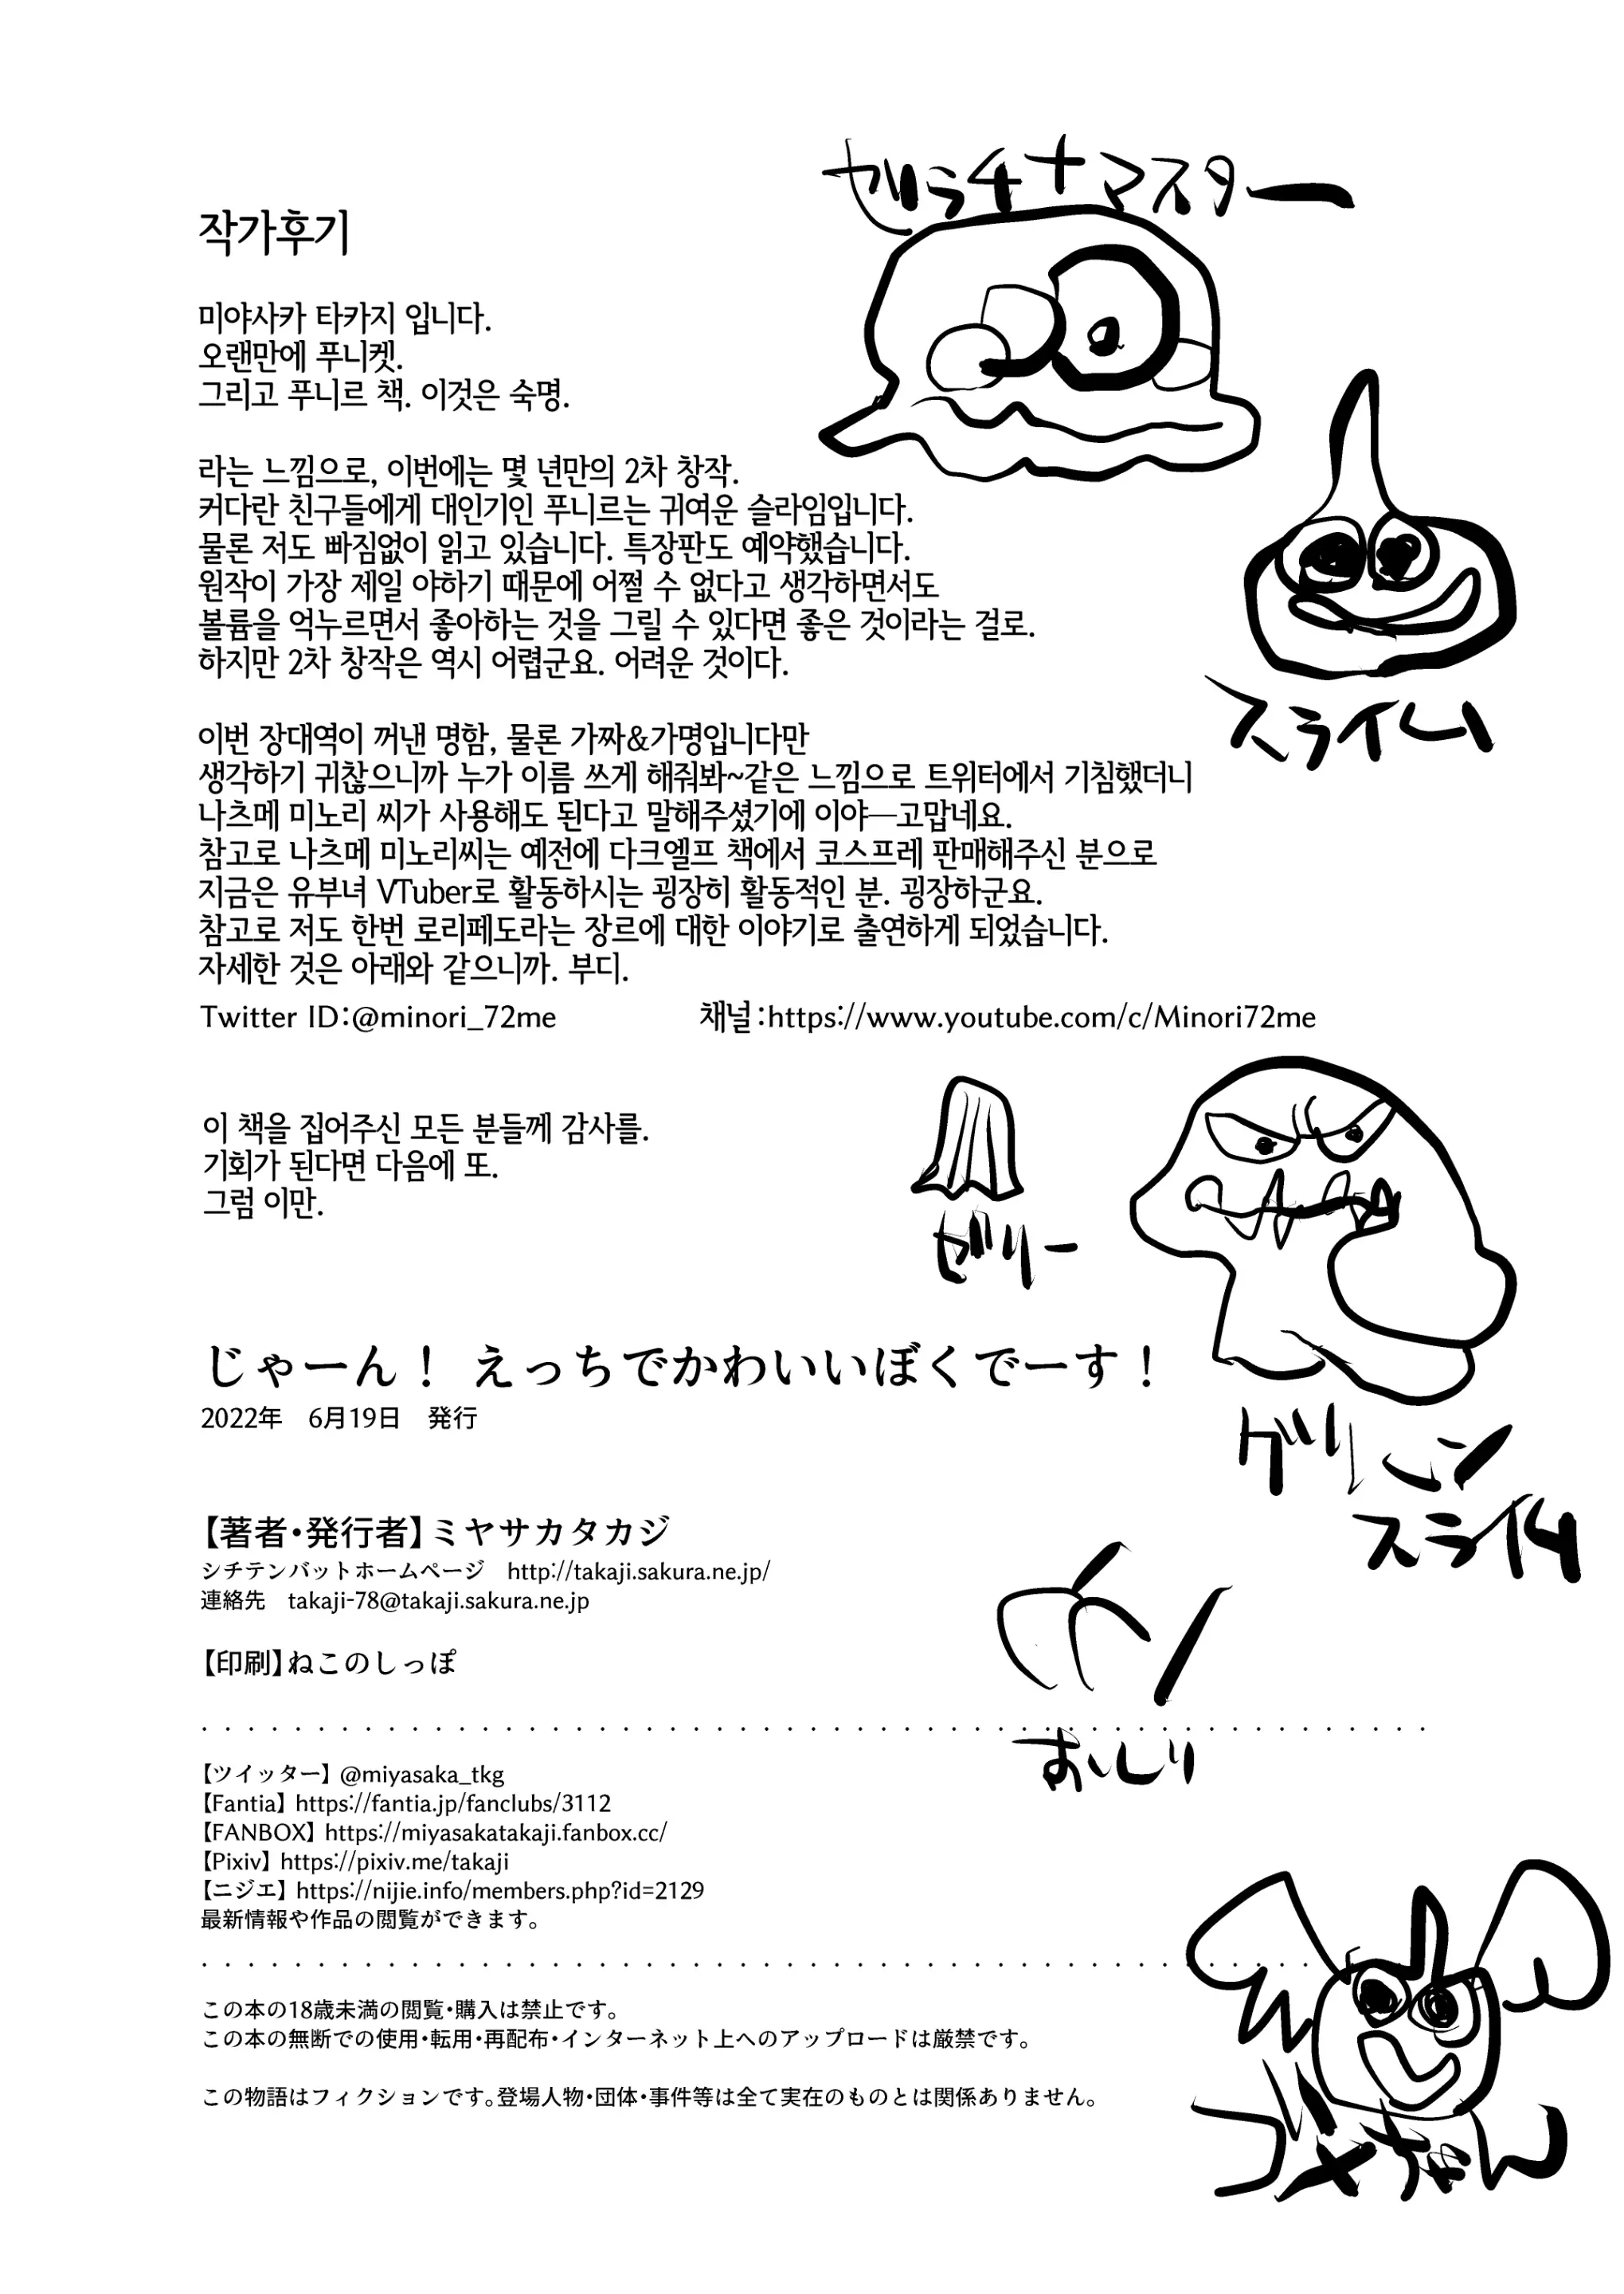 ゼラチナマスター
작가후기
미야사카 타카지 입니다.
오랜만에 푸니켓.
그리고 푸니르 책. 이것은 숙명.
라는 느낌으로, 이번에는 몇 년만의 2차 창작.
커다란 친구들에게 대인기인 푸니르는 귀여운 슬라임입니다.
물론 저도 빠짐없이 읽고 있습니다. 특장판도 예약했습니다.
원작이 가장 제일 야하기 때문에 어쩔 수 없다고 생각하면서도
볼륨을 억누르면서 좋아하는 것을 그릴 수 있다면 좋은 것이라는 걸로.
하지만 2차 창작은 역시 어렵군요. 어려운 것이다.
スライム
이번 장대역이 꺼낸 명함, 물론 가짜&가명입니다만
생각하기 귀찮으니까 누가 이름 쓰게 해줘봐~같은 느낌으로 트위터에서 기침했더니
나츠메 미노리 씨가 사용해도 된다고 말해주셨기에 이야—고맙네요.
참고로 나츠메 미노리씨는 예전에 다크엘프 책에서 코스프레 판매해주신 분으로
지금은 유부녀 VTuber로 활동하시는 굉장히 활동적인 분. 굉장하군요.
참고로 저도 한번 로리페도라는 장르에 대한 이야기로 출연하게 되었습니다.
자세한 것은 아래와 같으니까. 부디.
Twitter ID:@minori_72me 채널:https://www.youtube.com/c/Minori72me
이 책을 집어주신 모든 분들께 감사를.
기회가 된다면 다음에 또.
그럼 이만.
ゼリー
じゃーん！ えっちでかわいいぼくでーす！
2022年 6月19日 発行
グリーン
スライム
【著者・発行者】ミヤサカタカジ
シチテンバットホームページ http://takaji.sakura.ne.jp/
連絡先 takaji-78@takaji.sakura.ne.jp
【印刷】ねこのしっぽ
おしり
【ツイッター】@miyasaka_tkg
【Fantia】https://fantia.jp/fanclubs/3112
【FANBOX】https://miyasakatakaji.fanbox.cc/
【Pixiv】https://pixiv.me/takaji
【ニジエ】https://nijie.info/members.php?id=2129
最新情報や作品の閲覧ができます。
この本の18歳未満の閲覧・購入は禁止です。
この本の無断での使用・転用・再配布・インターネット上へのアップロードは厳禁です。
この物語はフィクションです。登場人物・団体・事件等は全て実在のものとは関係ありません。